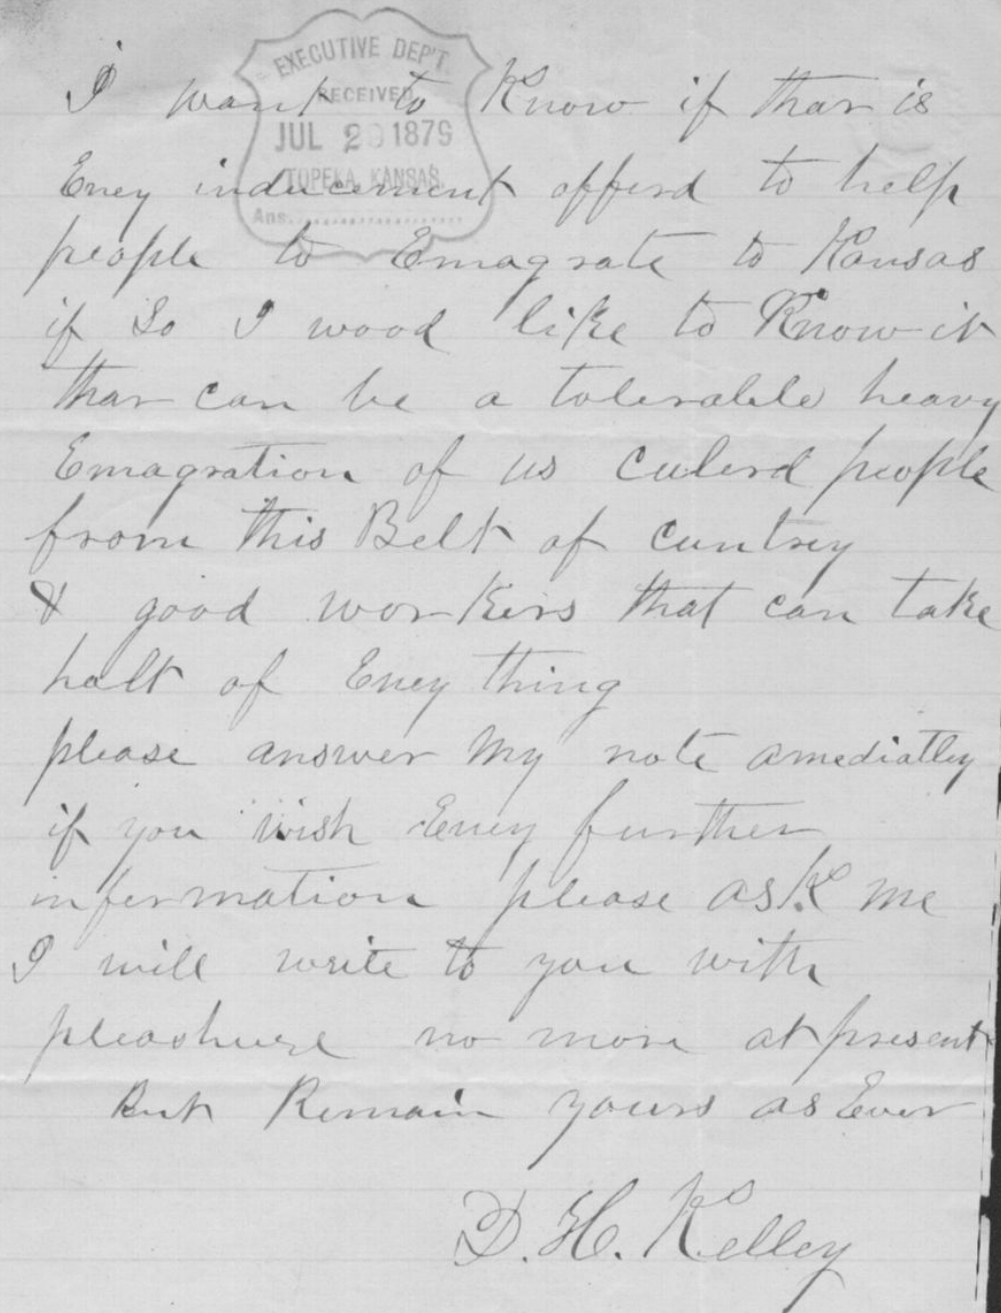 EXECUTIVE DEP'T.
RECEIVED
JUL 2 1879
TOPEKA, KANSAS.
Ans.
I want to Know if thar is
Eney inducementofferd to help
people to Emagrate to Kansas
if So I wood like to Know it
thar can be a tolerable heavy
Emagration of us culerd people
from this Belt of cuntrey
& good workers that can take
holt of Eney thing
please answer my note amediatley
if you wish Eney further
information please ask me
I will write to you with
pleashure no more at present
But Remain yours as Ever
D. H. Kelley